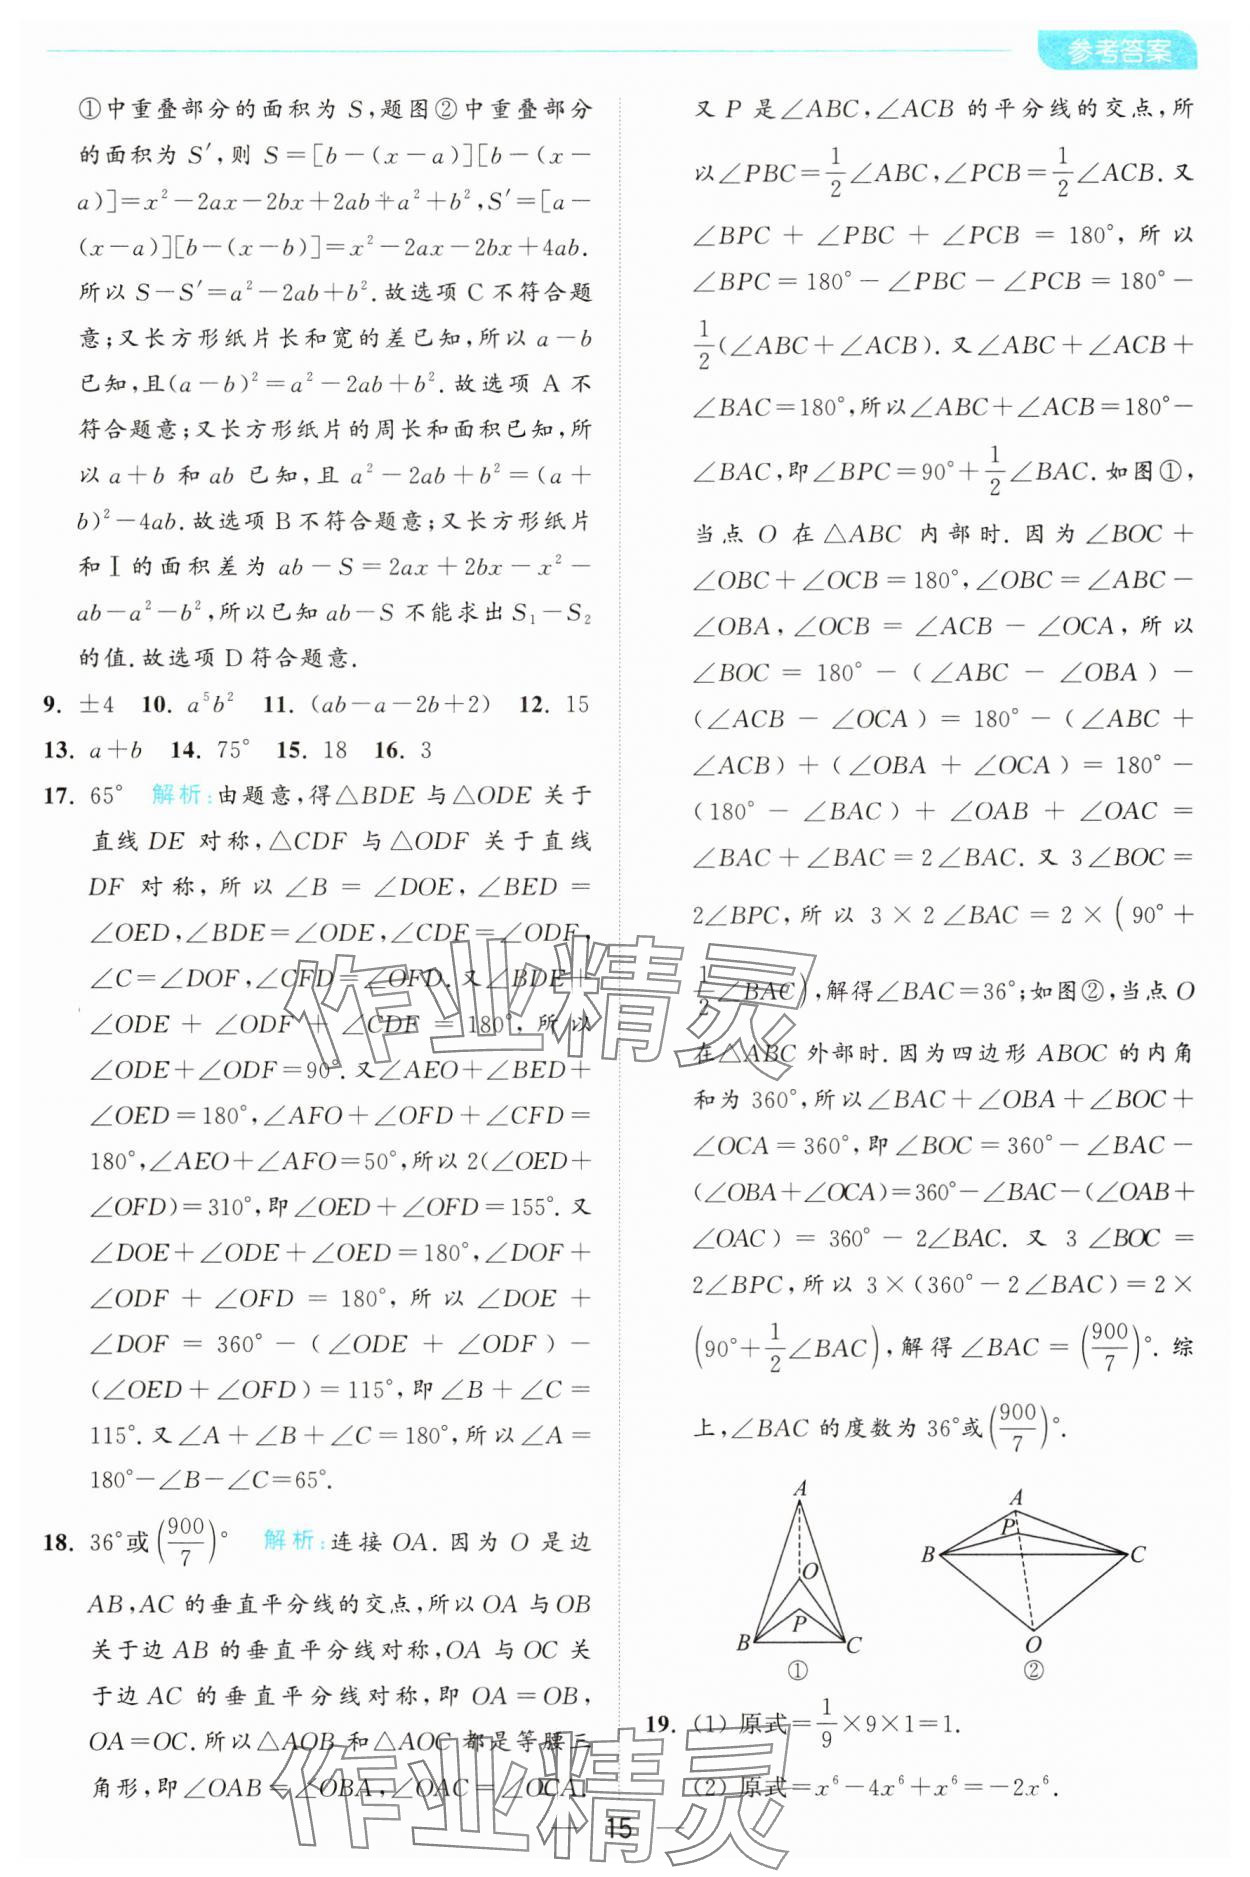 参考答案
①中重叠部分的面积为 S,题图②中重叠部分
的面积为 S′,则 S=[b-(x-a)][b-(x-
a)]=x²-2ax-2bx+2ab+a²+b²,S′=[a-
(x-a)][b-(x-b)]=x²-2ax-2bx+4ab.
所以 S-S′=a²-2ab+b².故选项 C 不符合题
意;又长方形纸片长和宽的差已知,所以 a-b
已知,且(a-b)²=a²-2ab+b².故选项 A 不
符合题意;又长方形纸片的周长和面积已知,所
以 a+b 和 ab 已知,且 a²-2ab+b²=(a+
b)²-4ab.故选项 B 不符合题意;又长方形纸片
和Ⅰ的面积差为 ab-S=2ax+2bx-x²-
ab-a²-b²,所以已知 ab-S 不能求出 S₁-S₂
的值.故选项 D 符合题意.
9. ±4 10. a⁵b² 11. (ab-a-2b+2) 12. 15
13. a+b 14. 75° 15. 18 16. 3
17. 65° 解析:由题意,得△BDE 与△ODE 关于
直线 DE 对称,△CDF 与△ODF 关于直线
DF 对称,所以∠B=∠DOE,∠BED=
∠OED,∠BDE=∠ODE,∠CDF=∠ODF,
∠C=∠DOF,∠CFD=∠OFD.又∠BDE+
∠ODE+∠ODF+∠CDF=180°,所以
∠ODE+∠ODF=90°.又∠AEO+∠BED+
∠OED=180°,∠AFO+∠OFD+∠CFD=
180°,∠AEO+∠AFO=50°,所以 2(∠OED+
∠OFD)=310°,即∠OED+∠OFD=155°.又
∠DOE+∠ODE+∠OED=180°,∠DOF+
∠ODF+∠OFD=180°,所以∠DOE+
∠DOF=360°-(∠ODE+∠ODF)-
(∠OED+∠OFD)=115°,即∠B+∠C=
115°.又∠A+∠B+∠C=180°,所以∠A=
180°-∠B-∠C=65°.
18. 36°或(900/7)° 解析:连接 OA.因为 O 是边
AB,AC 的垂直平分线的交点,所以 OA 与 OB
关于边 AB 的垂直平分线对称,OA 与 OC 关
于边 AC 的垂直平分线对称,即 OA=OB,
OA=OC.所以△AOB 和△AOC 都是等腰三
角形,即∠OAB=∠OBA,∠OAC=∠OCA.
又 P 是∠ABC,∠ACB 的平分线的交点,所
以∠PBC=1/2∠ABC,∠PCB=1/2∠ACB.又
∠BPC+∠PBC+∠PCB=180°,所以
∠BPC=180°-∠PBC-∠PCB=180°-
1/2(∠ABC+∠ACB).又∠ABC+∠ACB+
∠BAC=180°,所以∠ABC+∠ACB=180°-
∠BAC,即∠BPC=90°+1/2∠BAC.如图①,
当点 O 在△ABC 内部时.因为∠BOC+
∠OBC+∠OCB=180°,∠OBC=∠ABC-
∠OBA,∠OCB=∠ACB-∠OCA,所以
∠BOC=180°-(∠ABC-∠OBA)-
(∠ACB-∠OCA)=180°-(∠ABC+
∠ACB)+(∠OBA+∠OCA)=180°-
(180°-∠BAC)+∠OAB+∠OAC=
∠BAC+∠BAC=2∠BAC.又 3∠BOC=
2∠BPC,所以 3×2∠BAC=2×(90°+
1/2∠BAC),解得∠BAC=36°;如图②,当点 O
在△ABC 外部时.因为四边形 ABOC 的内角
和为 360°,所以∠BAC+∠OBA+∠BOC+
∠OCA=360°,即∠BOC=360°-∠BAC-
(∠OBA+∠OCA)=360°-∠BAC-(∠OAB+
∠OAC)=360°-2∠BAC.又 3∠BOC=
2∠BPC,所以 3×(360°-2∠BAC)=2×
(90°+1/2∠BAC),解得∠BAC=(900/7)°.综
上,∠BAC 的度数为 36°或(900/7)°.
A
O
P
B C
①
A
P
B C
O
②
19. (1) 原式=1/9×9×1=1.
(2) 原式=x⁶-4x⁶+x⁶=-2x⁶.
15
作业精灵
作业精灵